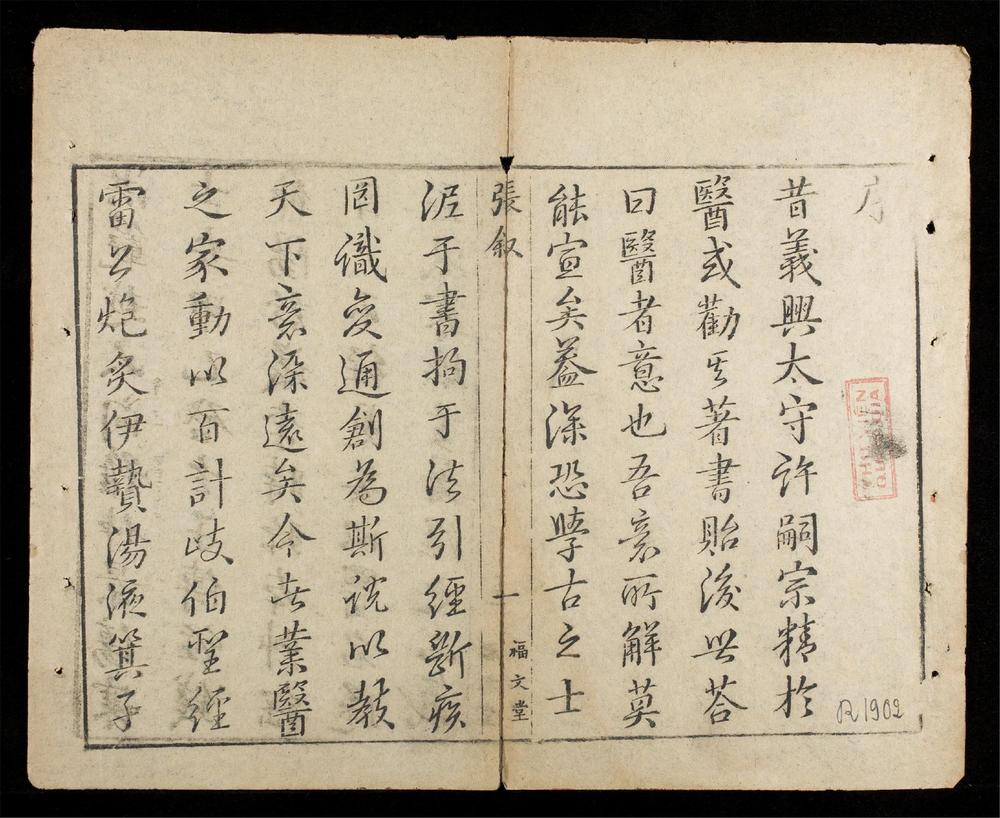 序
昔義興太守許嗣宗精於
醫或勸其著書貽後世答
曰醫者意也吾意所解莫
能宣矣蓋深恐學古之士
張叙
一
福文堂
泥于書拘于法引經斷疾
罔識變通創為斯說以教
天下意深遠矣今世業醫
之家動以百計岐伯聖經
雷公炮炙伊贄湯液箕子
THƯ VIỆN
QUỐC GIA
R1902